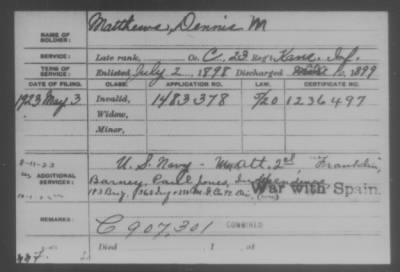 NAME OF SOLDIER: Matthews, Dennis M
SERVICE: Late rank, Co. C, 23 Reg't Kans. Inf.
TERM OF SERVICE: Enlisted July 2, 1898 Discharged 10, 1899
DATE OF FILING. CLASS. APPLICATION NO. LAW. CERTIFICATE NO.
1923 May 3 Invalid, 1483378 1236497
Widow,
Minor,
8-11-23 U.S. Navy - 2d Franklin,
ADDITIONAL SERVICES: Barney, Paul Jones, Independence
War with Spain.
REMARKS: C 907,301 COMBINED
Died , at